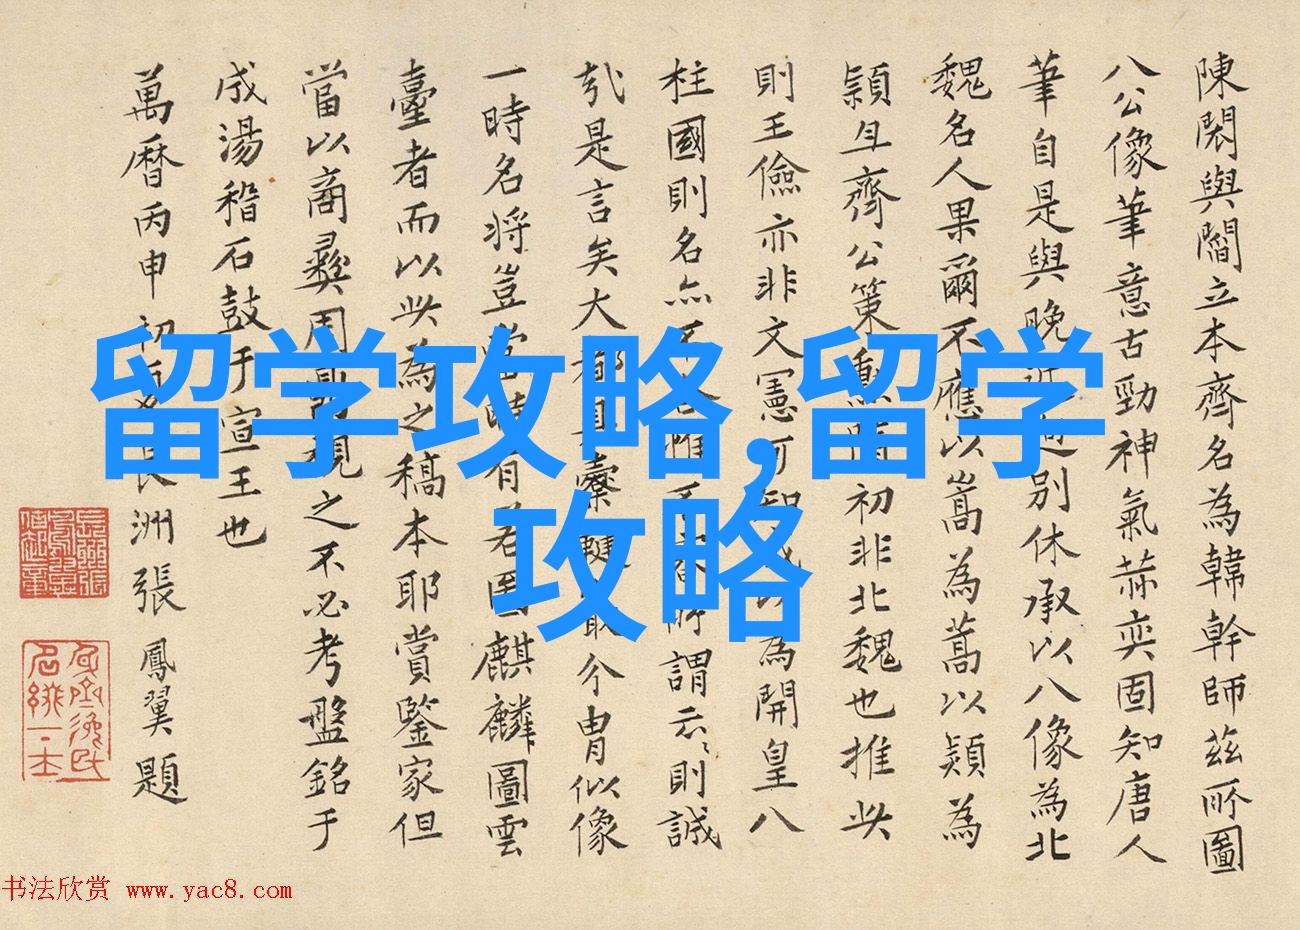 陳閎與閻立本齊名為韓幹師茲所圖
八公像筆意古勁神氣赫奕固知唐人
筆自是與晚近迥別休承以八像為北
魏名人果爾不應以嵩為蒿以熲為
穎且齊公策勳隋初非北魏也推此
則王儉亦非文憲可知或以為開皇八
柱國則名亦不謂云云則誠
哉是言矣大都具櫜鞬最今胄似像
一時名將豈當時有若圖麒麟圖雲
臺者而以此為之稿本耶賞鑒家但
當以商彝周鼎視之不必考盤銘于
成湯稽石鼓于宣王也
萬曆丙申初夏長洲張鳳翼題
留学攻略,留学
攻略
书法欣赏 www.yac8.com